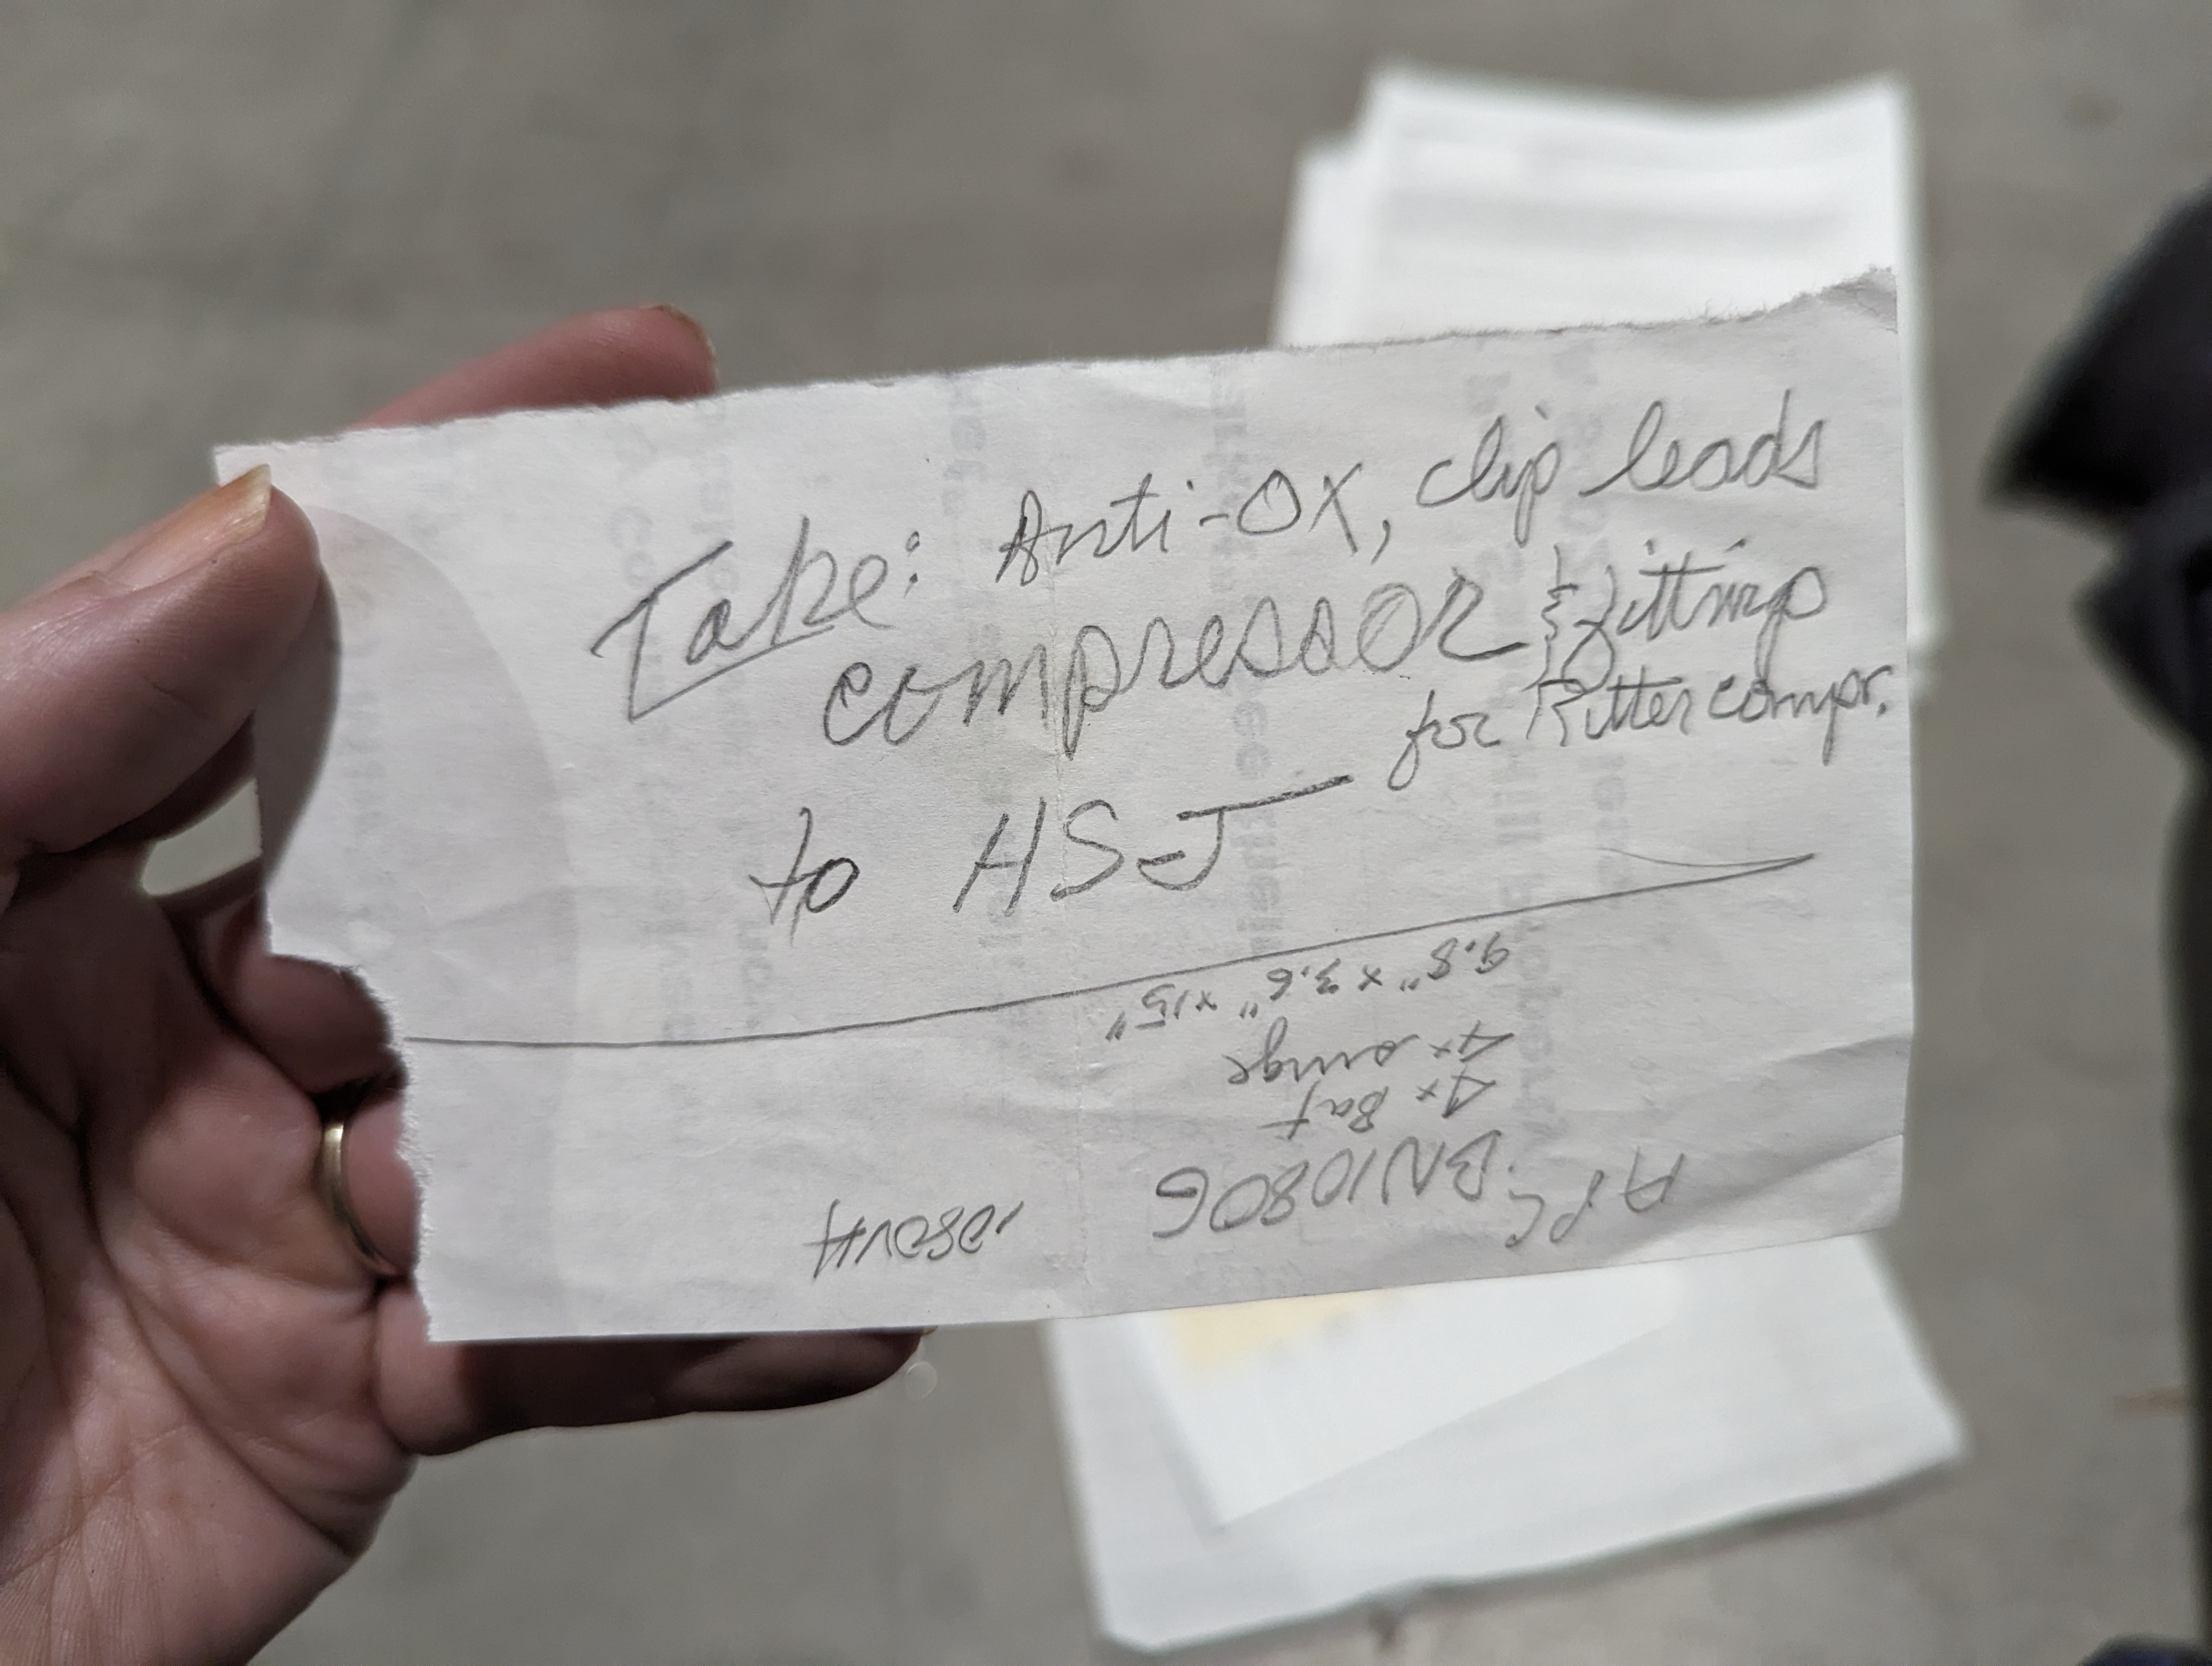 Take: Anti-OX, clip leads
compressor & fittings
for Ritter compr.
to HS-J
APC
BN1080G
1080VA
4x Bat
4x surge
9.8" x 3.6" x 15"